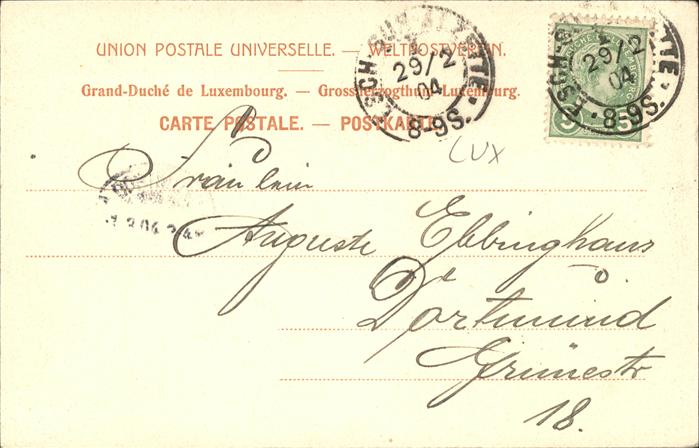 UNION POSTALE UNIVERSELLE. — WELTPOSTVEREIN.
Grand-Duché de Luxembourg. — Grossherzogthum Luxemburg.
CARTE POSTALE. — POSTKARTE.
ESCH-SUR-ALZETTE
29/2
04
8-9S.
ESCH-S ETTE
29/2
04
8-9S.
5
LUX
Fräulein
Auguste Ebbinghaus
Dortmund
Grünestr
18.